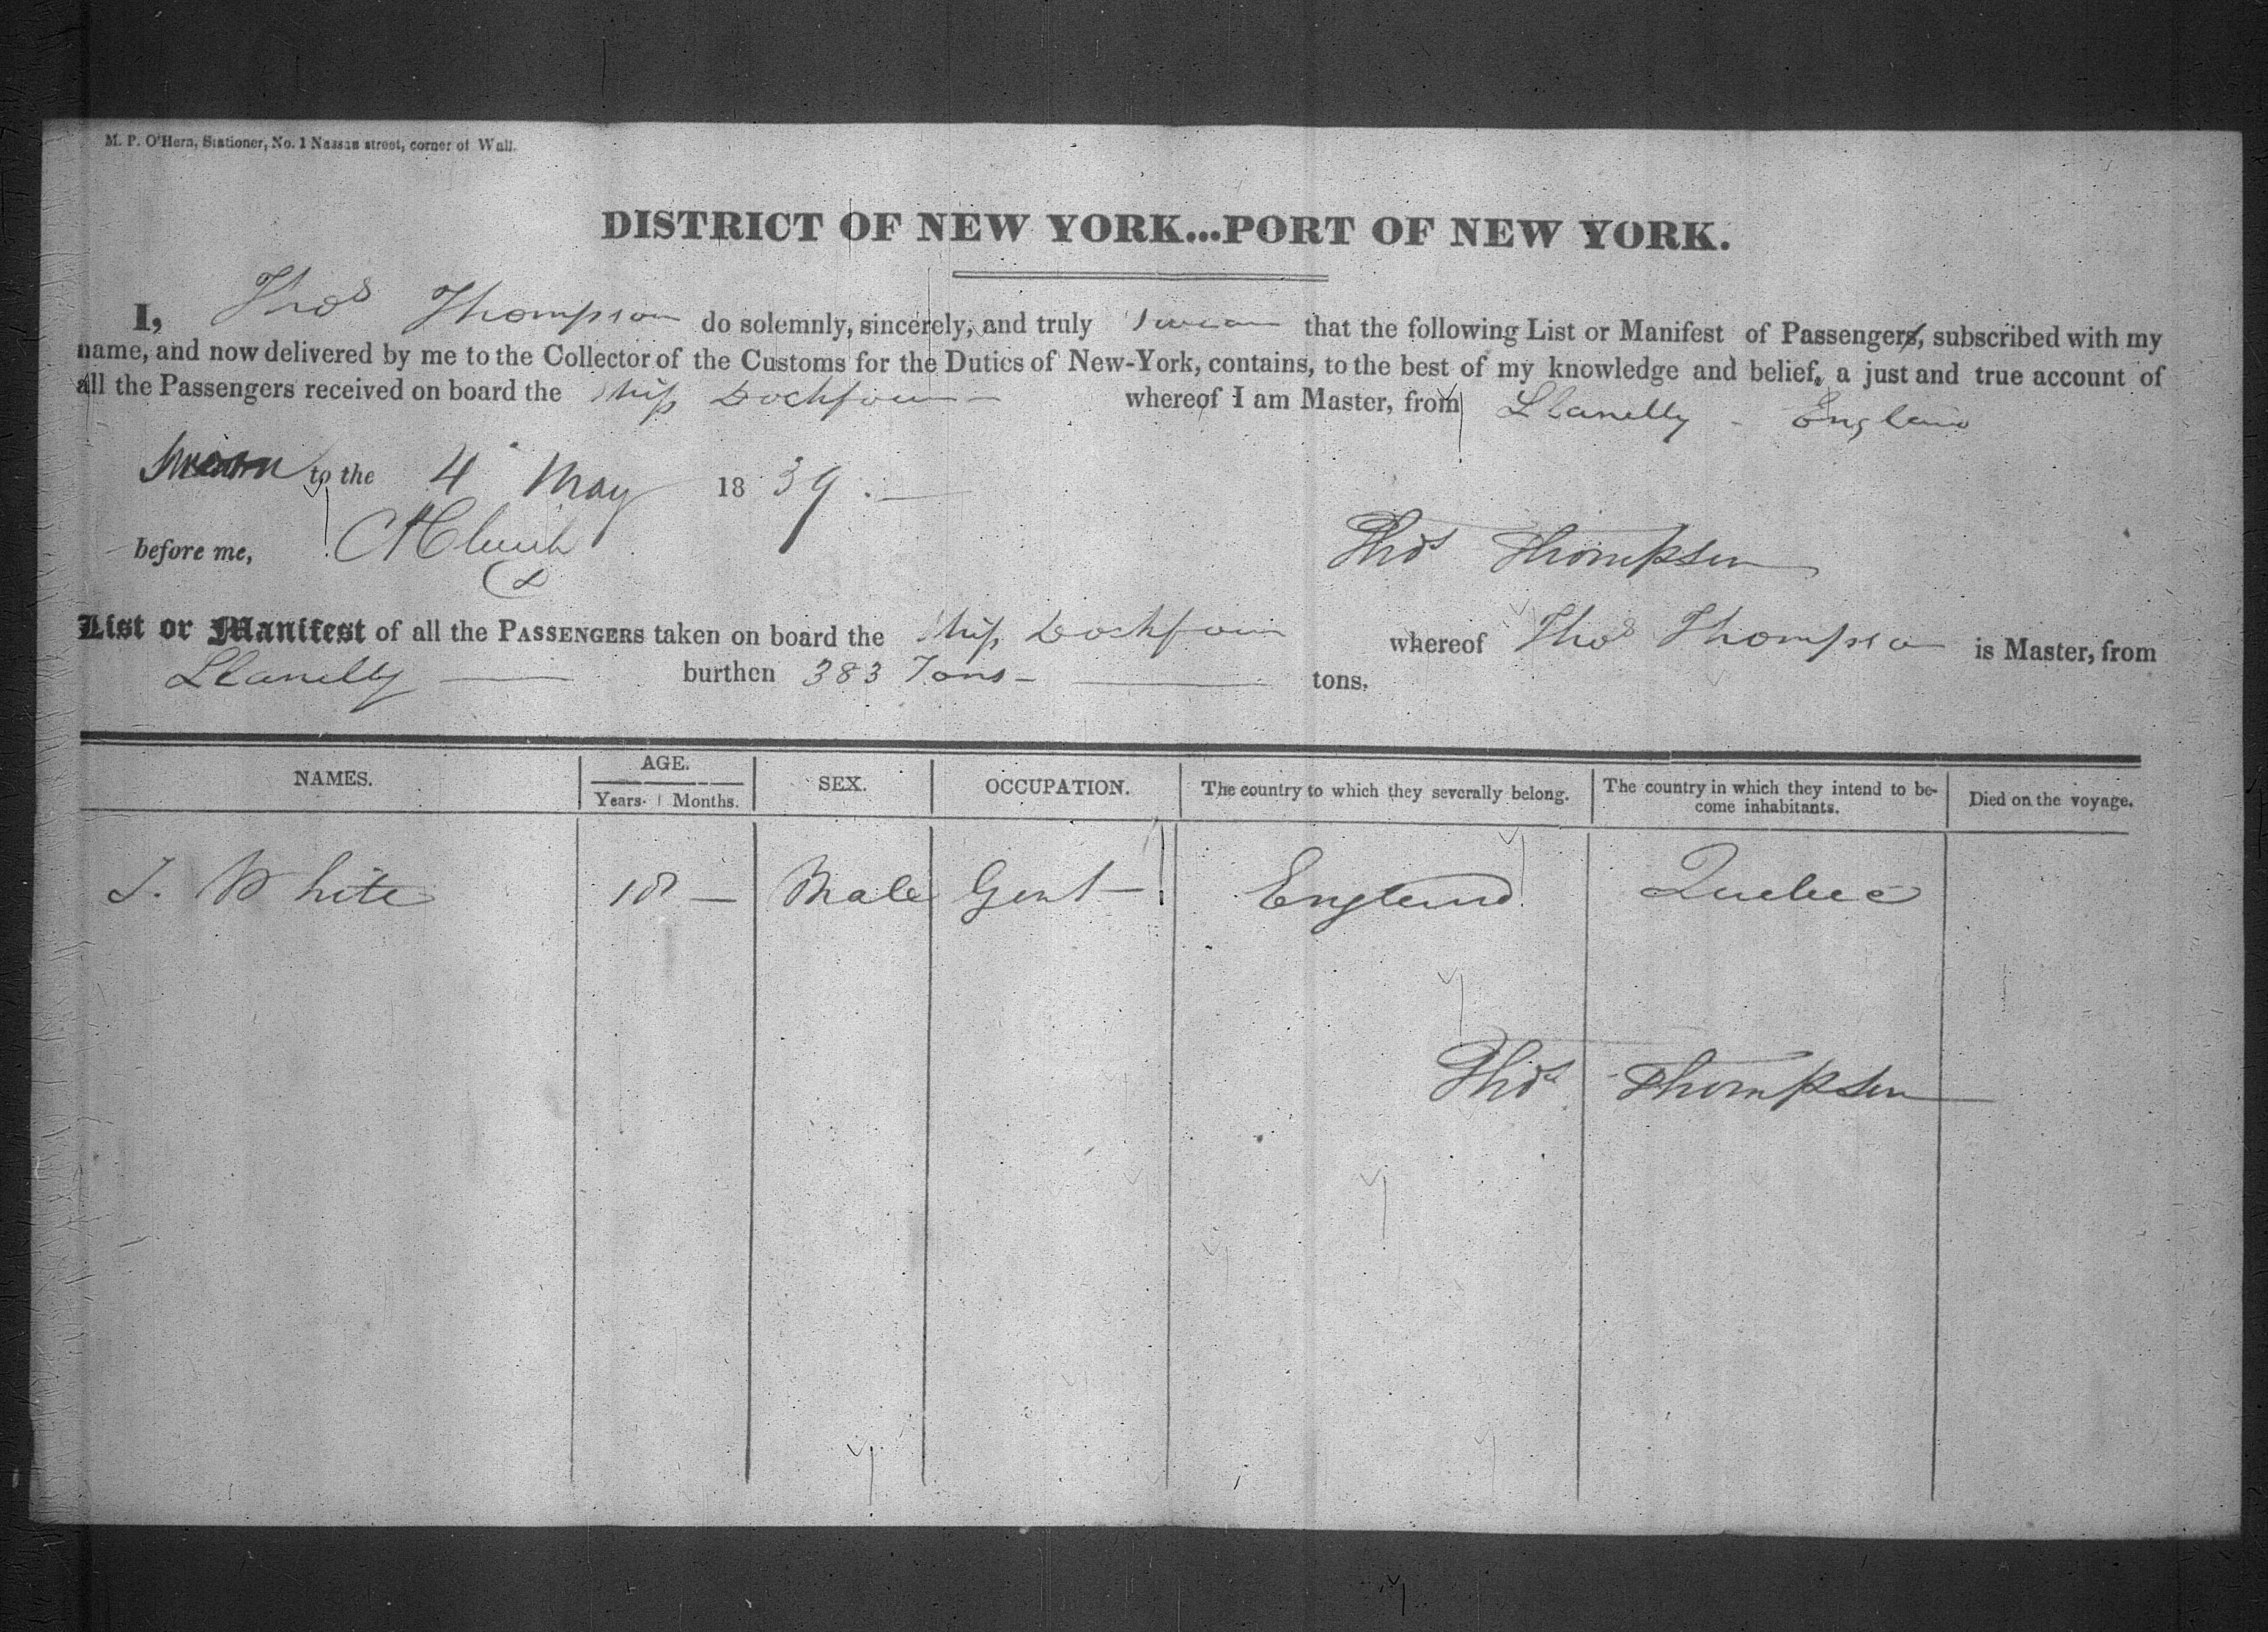 M. P. O'Hern, Stationer, No. 1 Nassau street, corner of Wall.
DISTRICT OF NEW YORK...PORT OF NEW YORK.
I, Thos Thompson do solemnly, sincerely, and truly Swear that the following List or Manifest of Passengers, subscribed with my
name, and now delivered by me to the Collector of the Customs for the Duties of New-York, contains, to the best of my knowledge and belief, a just and true account of
all the Passengers received on board the Ship Dochfour whereof I am Master, from Llanelly - England
Sworn to the 4 May 1839.
before me,
Thos Thompson
List or Manifest of all the PASSENGERS taken on board the Ship Dochfour whereof Thos Thompson is Master, from
Llanelly burthen 383 Tons - tons.
NAMES. AGE. SEX. OCCUPATION. The country to which they severally belong. The country in which they intend to be-
come inhabitants. Died on the voyage.
Years. Months.
J. White 18 — Male Gent — England Quebec
Thos Thompson